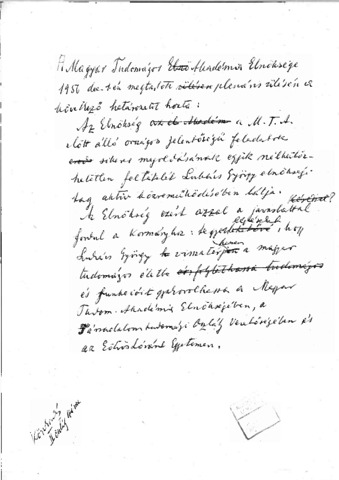 A Magyar Tudományos Akadémia Elnöksége
1956 dec. 1-én megtartott plenáris ülésén a
következő határozatot hozta:
Az Elnökség a M.T.A.
előtt álló országos jelentőségű feladatok
sikeres megoldásának egyik nélkülöz-
hetetlen feltételét Lukács György elnökségi
tag aktív közreműködésében látja.
kéréssel?
Az Elnökség ezért azzal a javaslattal
fordul a Kormányhoz: hogy , hogy
Lukács György visszatérjen a magyar
tudományos életbe
és funkcióit gyakorolhassa a Magyar
Tudom. Akadémia Elnökségében, a
Társadalomtudományi Osztály Vezetőségében és
az Eötvös Loránd Egyetemen.